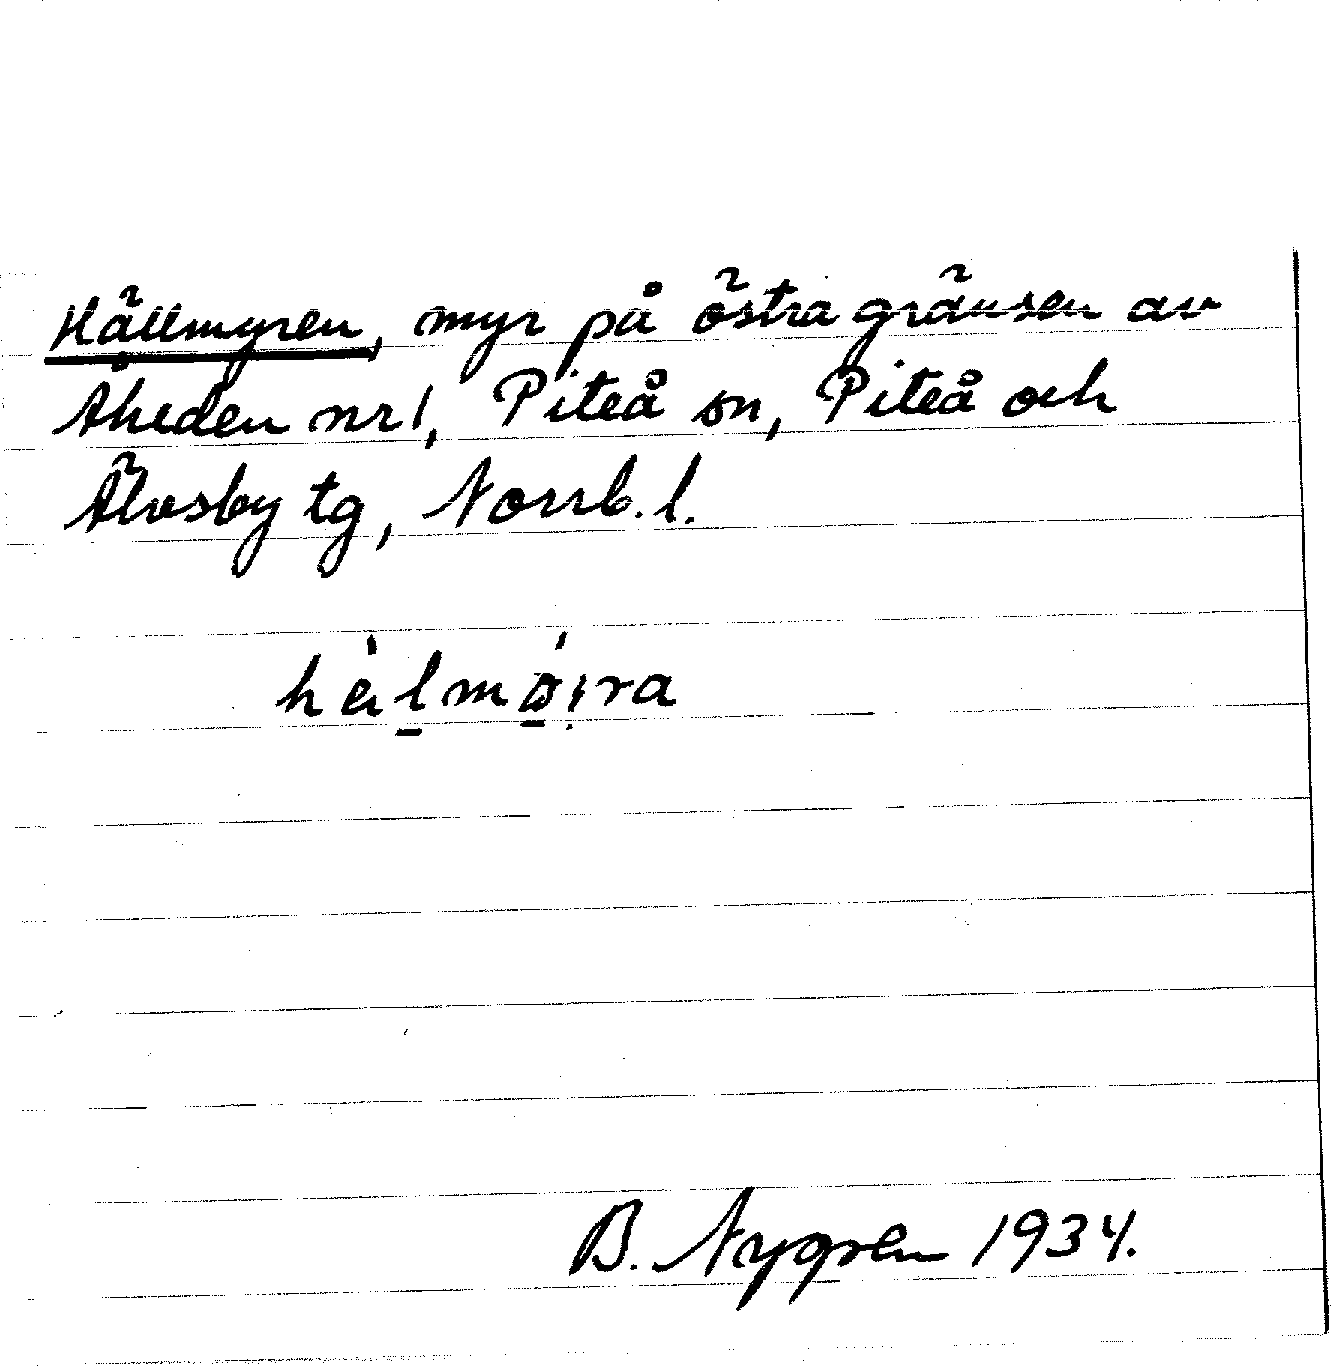 Hällmyren, myr på östra gränsen av
Åheden nr 1, Piteå sn, Piteå och
Älvsby tg, Norrb. l.
B. Nygren 1934.